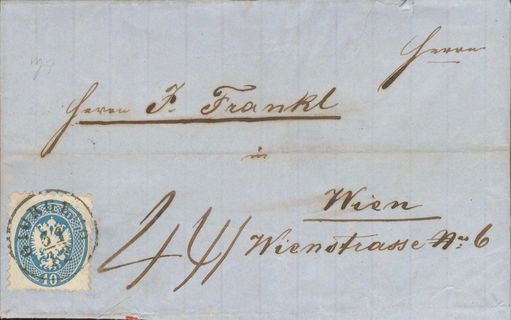 Herrn
Herrn J. Frankl
in
Wien
Wienstrasse No 6
10